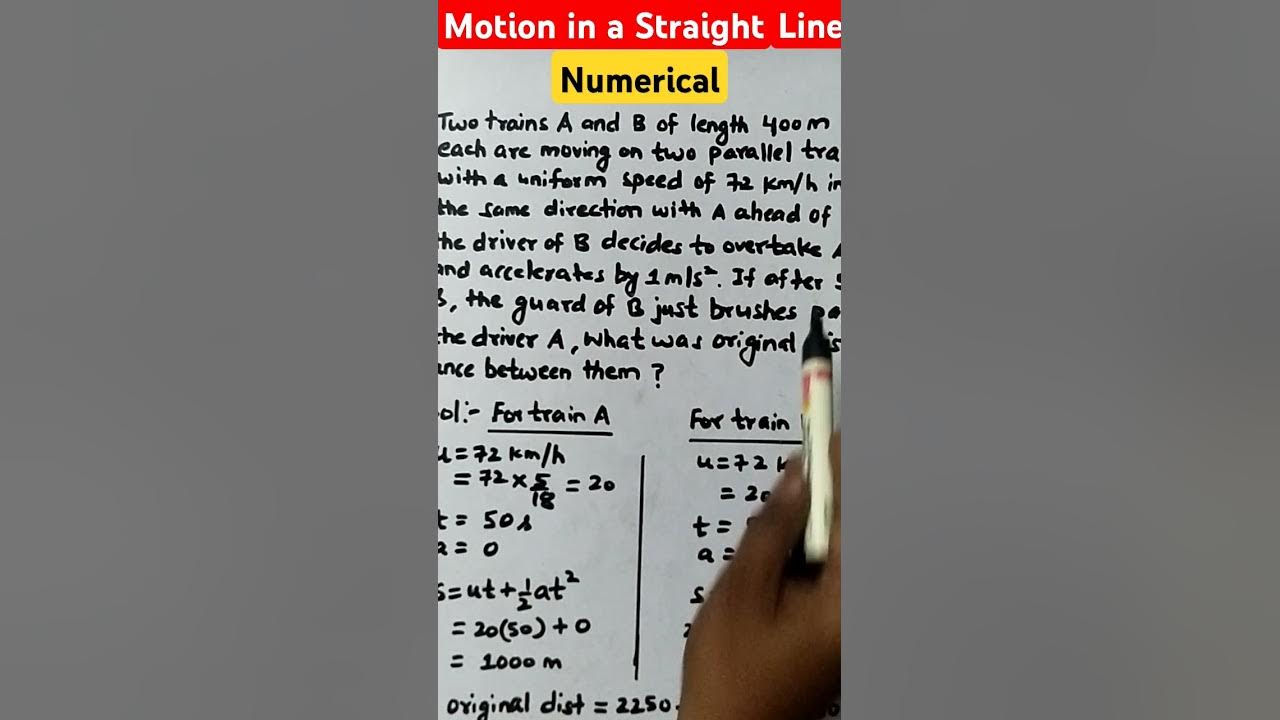 Motion in a Straight Line
Numerical
Two trains A and B of length 400m
each are moving on two parallel tra
with a uniform speed of 72 km/h in
the same direction with A ahead of
the driver of B decides to overtake A
and accelerates by 1m/s². If after 5
B, the guard of B just brushes pa
the driver A, what was original dis
ance between them ?
ol:- For train A
For train
u = 72 km/h
= 72 × 5/18 = 20
t = 50 s
a = 0
s = ut + 1/2 at²
= 20(50) + 0
= 1000 m
u = 72 k
= 20
t =
a =
s
original dist = 2250